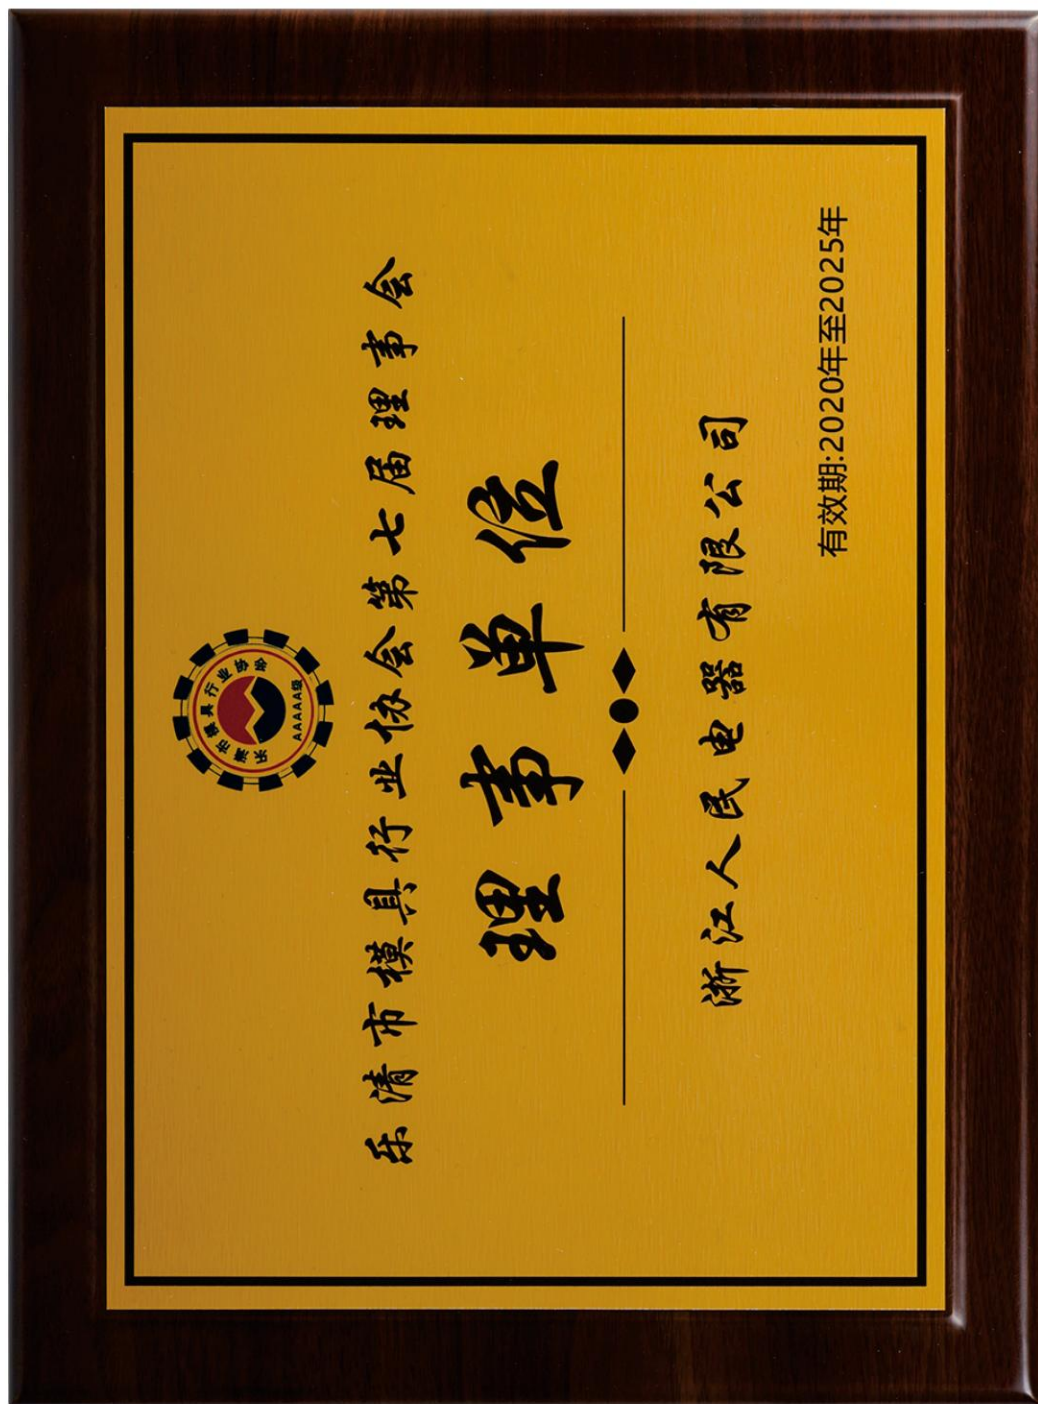 乐清市模具行业协会
AAAAA级
乐清市模具行业协会第七届理事会
理事单位
浙江人民电器有限公司
有效期:2020年至2025年